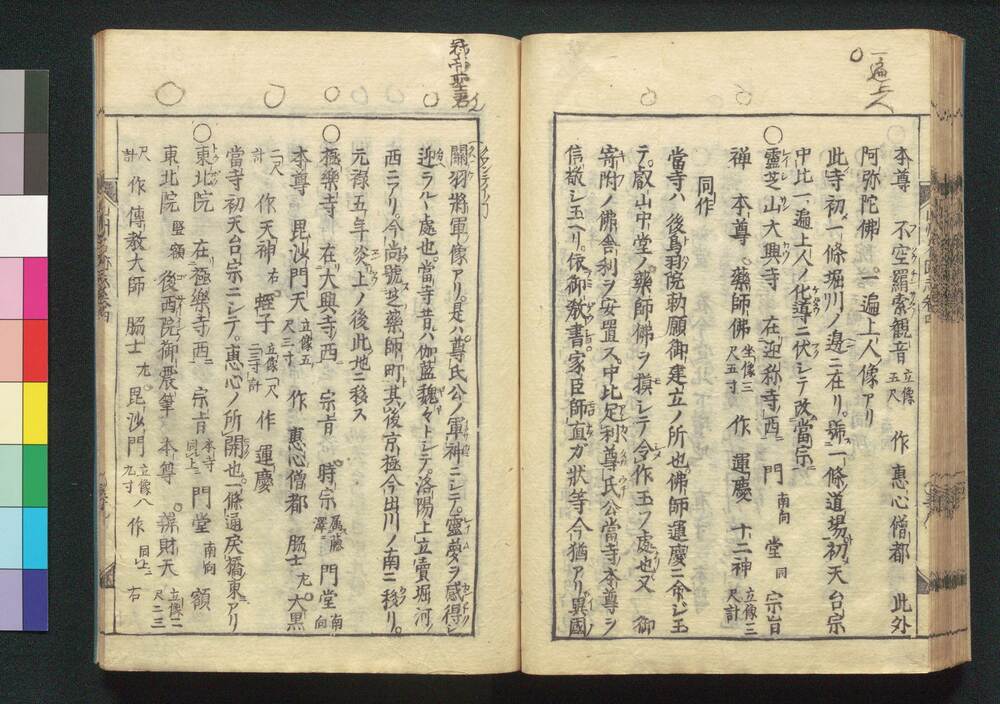 一遍上人
本尊 不空羂索観音 立像五尺 作 惠心僧都 此外
阿弥陀佛 一遍上人像アリ
此寺初一條堀川ノ邊ニ在リ。號一條道場初天台宗
中比一遍上人ノ化導ニ伏シテ改當宗
○靈芝山大興寺 在迎称寺西 門 南向 堂 同 宗旨
禅 本尊 藥師佛 坐像三尺五寸 作 運慶 十二神 立像三尺計
同作
當寺ハ後鳥羽院勅願御建立ノ所也佛師運慶ニ命シ玉
テ。叡山中堂ノ藥師佛ヲ摸シテ令作玉フ處也又 御
寄附ノ佛舎利ヲ安置ス中比足利尊氏公當寺本尊ヲ
信敬シ玉ヘリ。依御教書家臣師直カ状等今猶アリ異國
関羽將軍像アリ。是ハ尊氏公ノ軍神ニシテ。靈夢ヲ感得シ
迎ラル處也。當寺昔ハ伽藍魏々トシテ。洛陽上立賣堀河ノ
西ニアリ。今尚號芝藥師町其後京極今出川ノ南ニ移リ。
元禄五年炎上ノ後此地ニ移ス
○極樂寺 在大興寺西 宗旨 時宗 属藤澤 門堂 南向
本尊 毘沙門天 立像五尺三寸 作 惠心僧都 脇士 尢 大黒
二尺計 作天神 右 蛭子 立像一尺二三寸計 作 運慶
當寺初天台宗ニシテ。惠心ノ所開也一條通戻橋東アリ
○東北院 在極樂寺西 宗旨 本寺同上 門堂 南向 額
東北院 竪額 後西院御宸筆 本尊 辨財天 立像二尺二三
計 作 傳教大師 脇士 尢 毘沙門 立像八九寸 作 同上 右